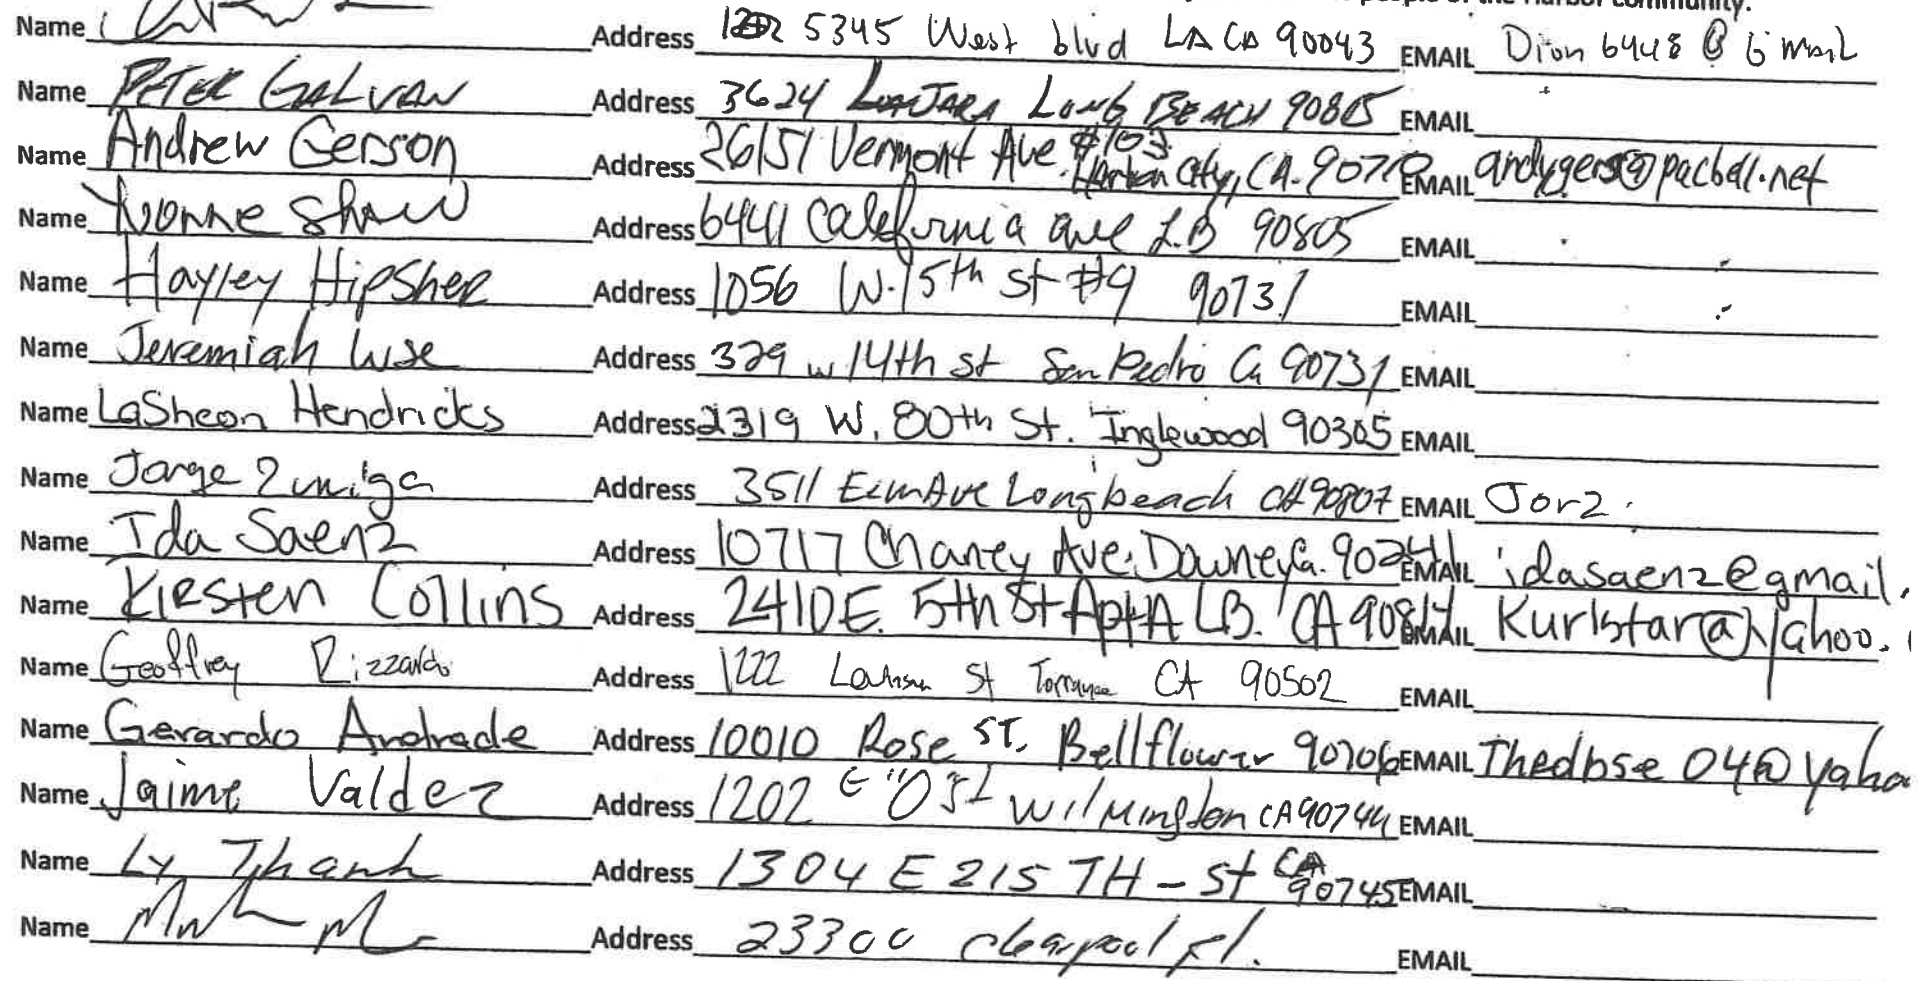 people of the Harbor community.
Name Address 5345 West blvd LA CA 90043 EMAIL Dion 6448 @ Gmail
Name PETER GALVAN Address 3624 LONG BEACH 90805 EMAIL
Name Andrew Gerson Address 26151 Vermont Ave. #103 Harbor City, CA. 90710 EMAIL andygers@pacbell.net
Name Yvonne Shaw Address 6441 California ave L.B 90805 EMAIL
Name Hayley Hipsher Address 1056 W. 15th St #9 90731 EMAIL
Name Jeremiah Wise Address 329 w 14th st San Pedro Ca 90731 EMAIL
Name LaSheon Hendricks Address 2319 W. 80th St. Inglewood 90305 EMAIL
Name Jorge Zuniga Address 3511 Elm Ave Longbeach CA 90807 EMAIL Jorz
Name Ida Saenz Address 10717 Chaney Ave. Downey Ca. 90241 EMAIL idasaenz@gmail.
Name Kirsten Collins Address 2410 E. 5th St Apt A LB. CA 90814 EMAIL Kurlstar@yahoo.
Name Geoffrey Rizzardo Address 1222 St Torrance CA 90502 EMAIL
Name Gerardo Andrade Address 10010 Rose ST. Bellflower 90706 EMAIL Thedbse 04@ yaho
Name Jaime Valdez Address 1202 E "O" St Wilmington CA 90744 EMAIL
Name Ly Thanh Address 1304 E 215 TH - St CA 90745 EMAIL
Name Address 23300 clearpool pl. EMAIL